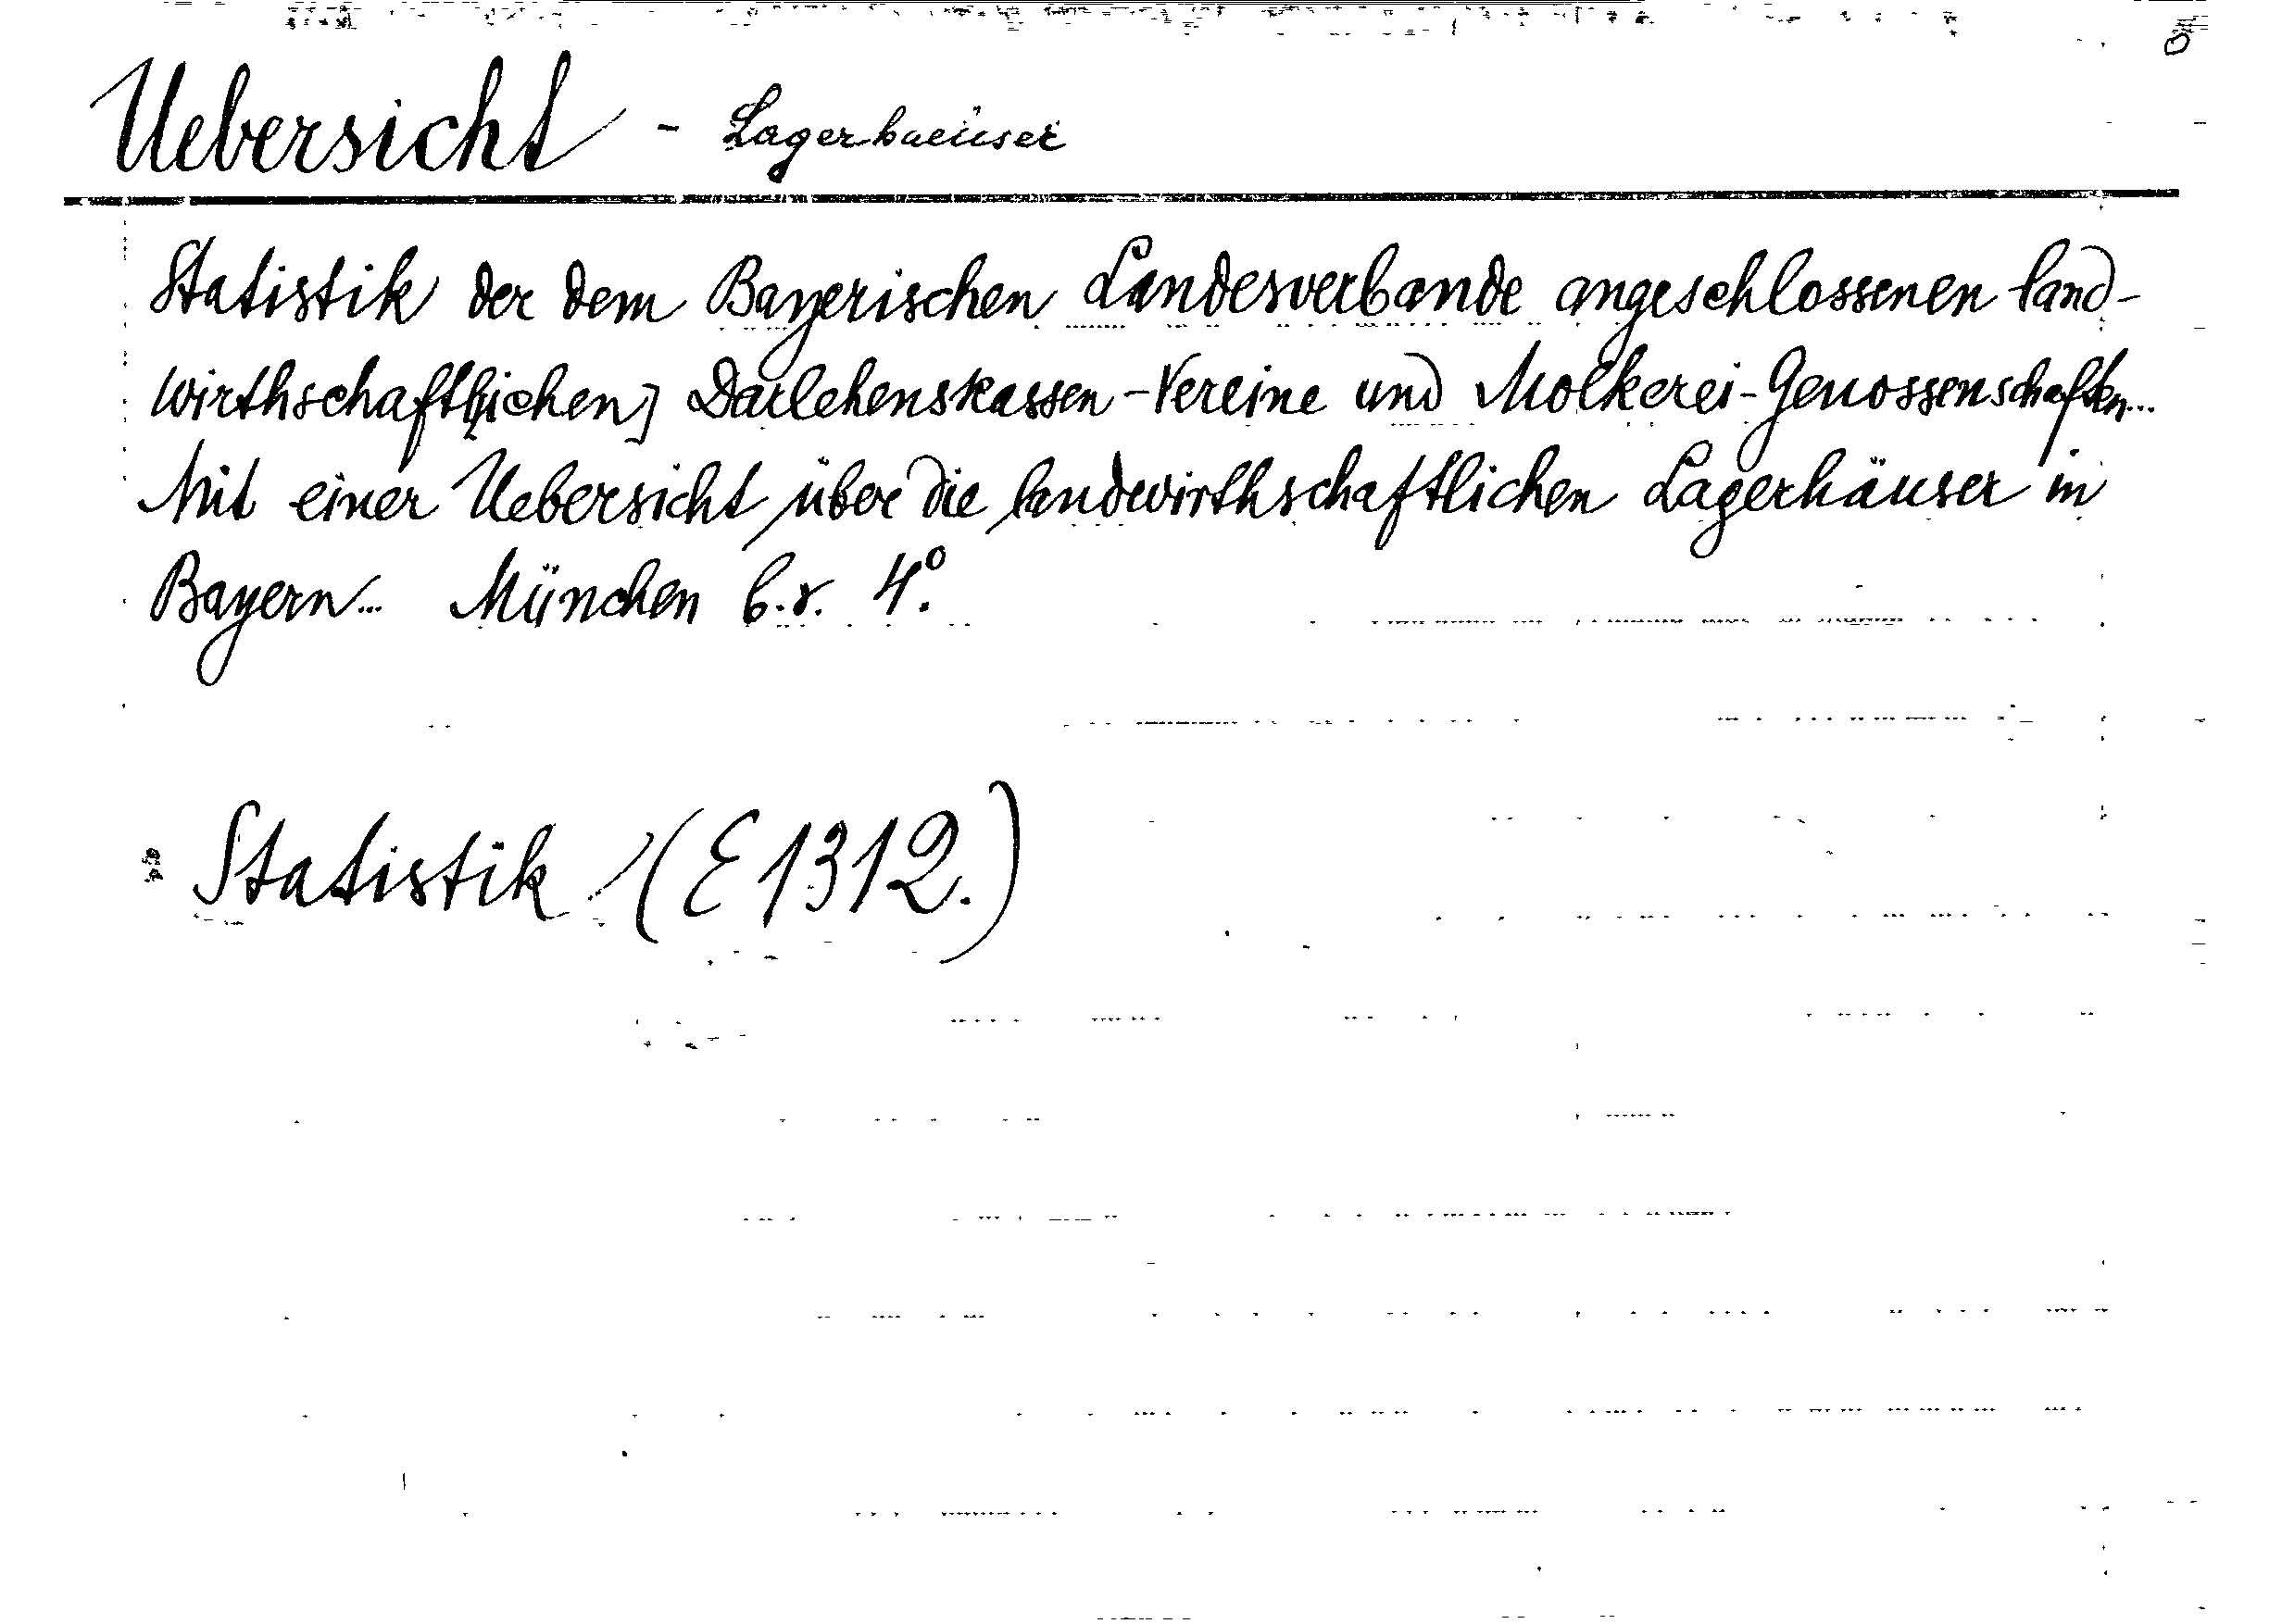 Uebersicht - Lagerhaeuser
Statistik der dem Bayerischen Landesverbande angeschlossenen land-
wirthschaftl[ichen] Darlehenskassen-Vereine und Molkerei-Genossenschaften...
Mit einer Uebersicht über die landwirthschaftlichen Lagerhäuser in
Bayern... München 4°.
Statistik (E 1312.)